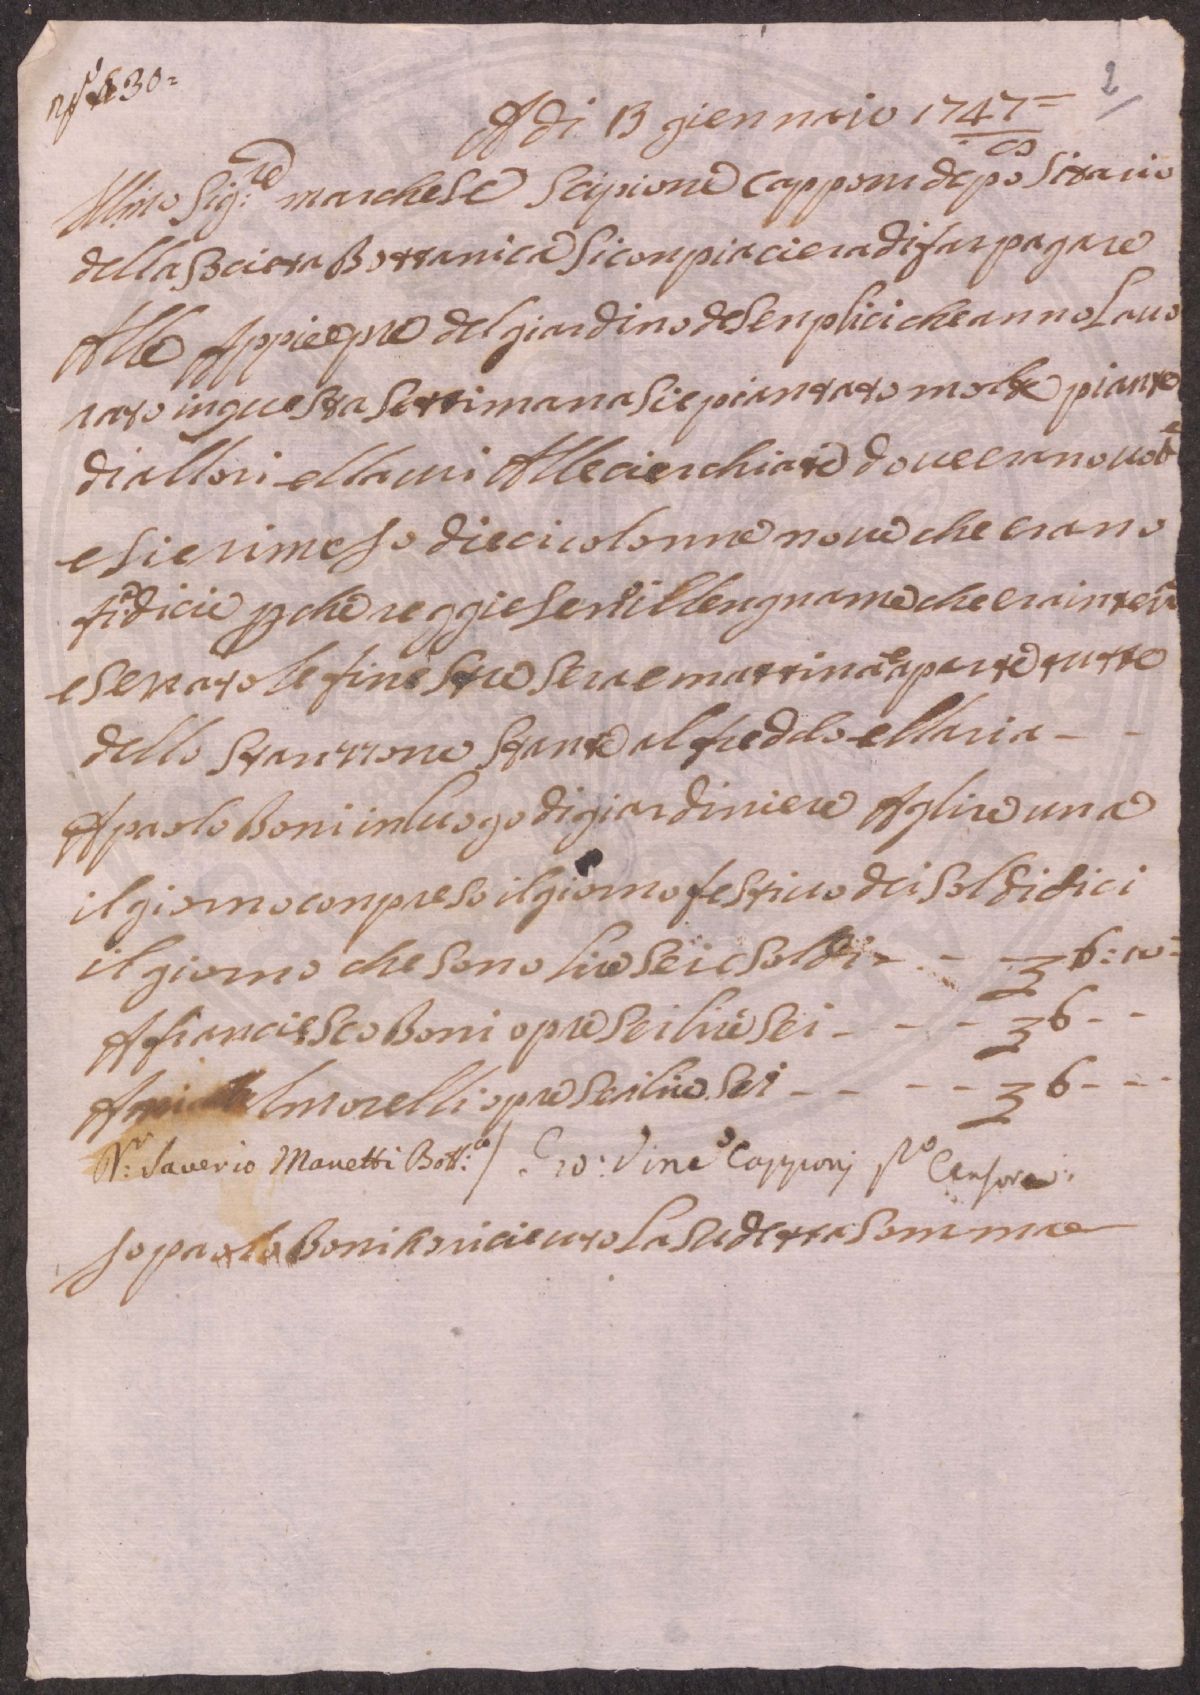 2
A di 13 giennaio 1747
Ill.mo Sig.re marchese Scipione Capponi depositario
della Societa Bottanica si conpiaciera di far pagare
Alle Appiè opre del giardino de Senplici che anno Lavo
rato in questa settimana sie piantato molte piante
di allori ellauri Alle cierchiate dove erano vote
e si e rimeso dieci colonne nove che erano
fradicie p che reggiese ill lengname che era in terra
e serrato le finestre sera e mattina e aperte tutte
dello stanzzone stante al freddo ellaria - -
A paolo Boni in luogo di giardiniere A lire una
il giorno conpreso il giorno festivo dei soldi dici
il giorno che sono lire sei e soldi - - - 6:10
A franciesco Boni opre sei lire sei - - - 6 - -
A lmorelli opre sei lire sei - - - - 6 - - -
Saverio Manetti Bott.co Gio: Vinc.o Capponj p.o Censore
Io paolo Boni ho riceuto La sudetta somma